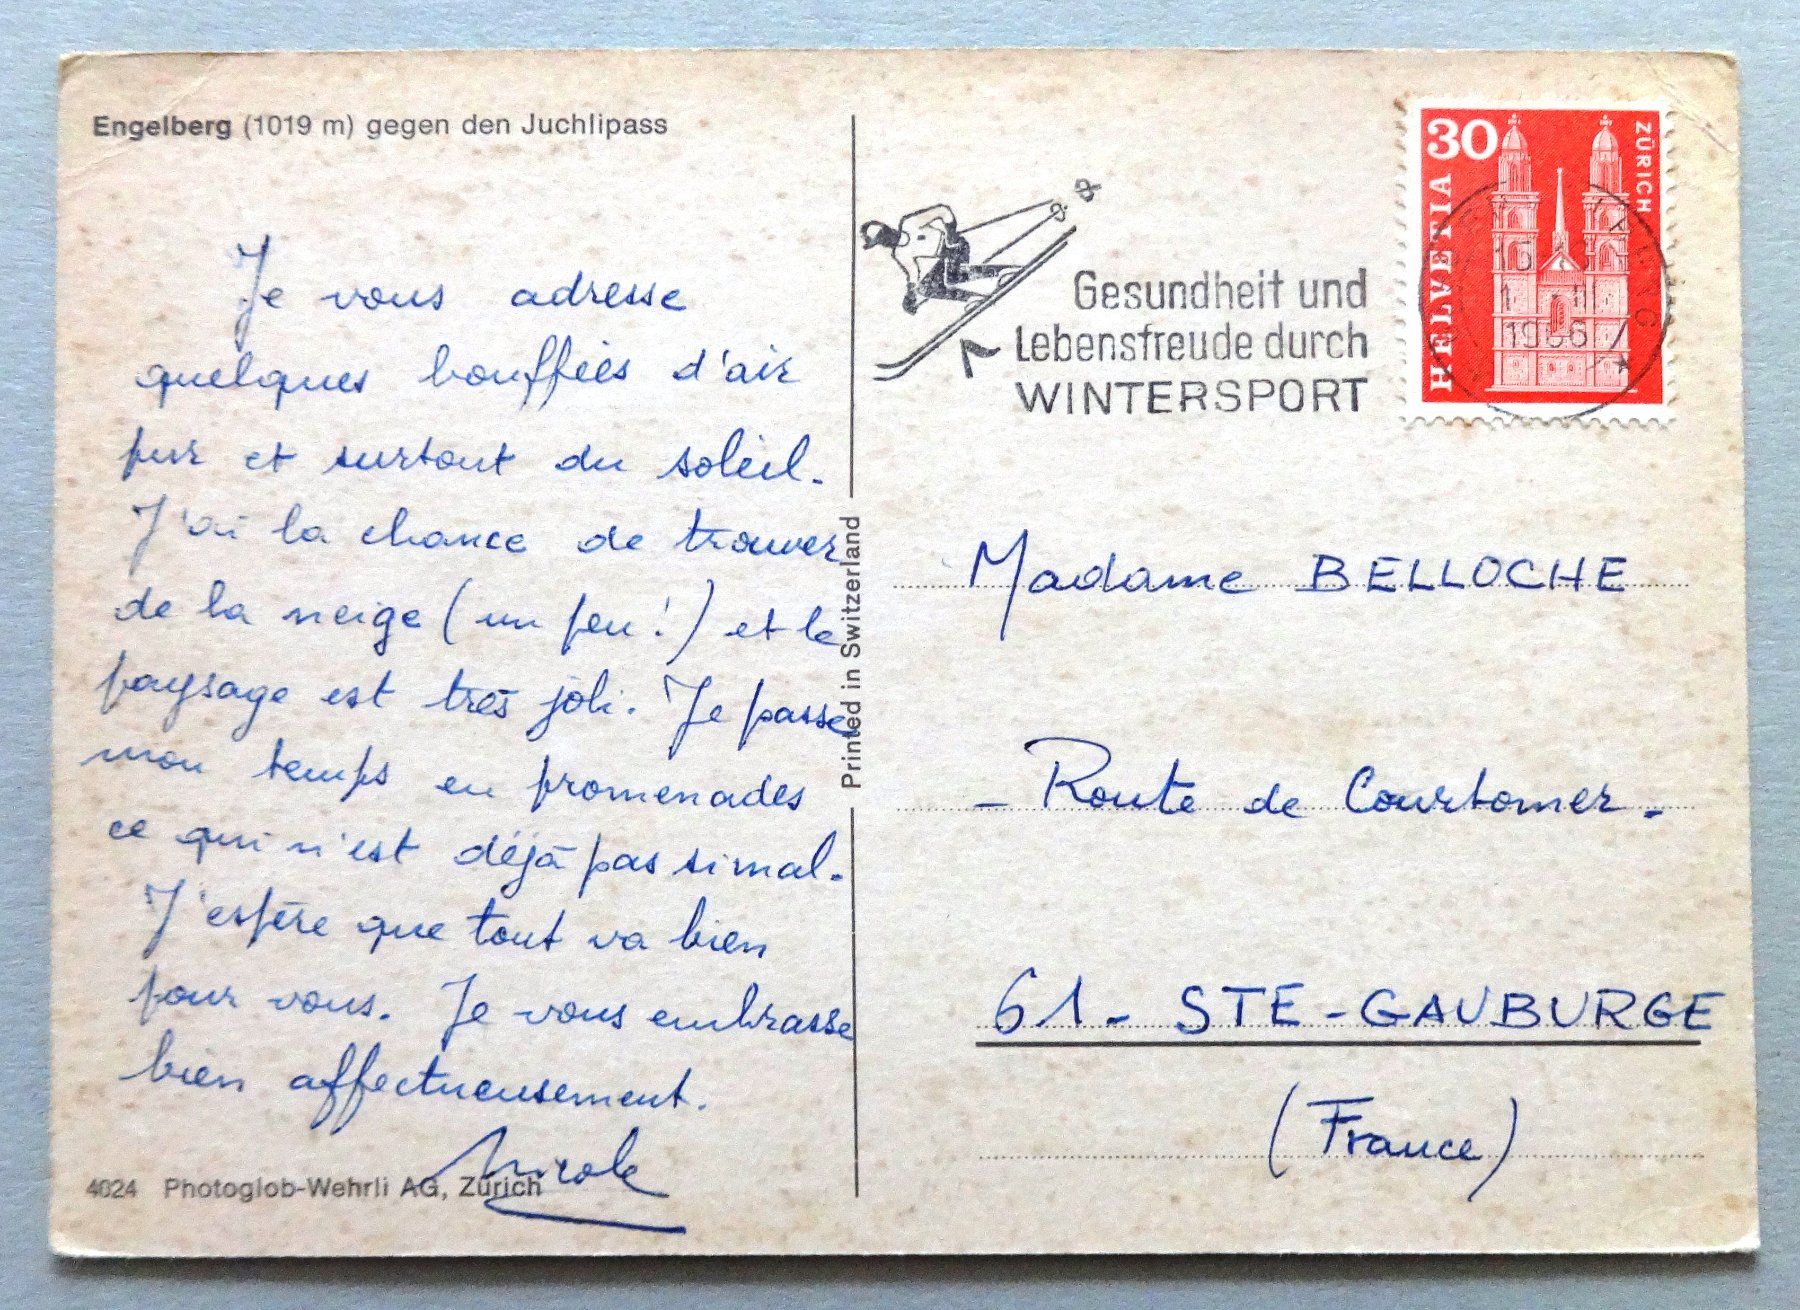 Engelberg (1019 m) gegen den Juchlipass
Je vous adresse
quelques bouffées d'air
pur et surtout du soleil.
J'ai la chance de trouver
de la neige (un peu!) et le
paysage est très joli. Je passe
mon temps en promenades
ce qui n'est déjà pas si mal.
J'espère que tout va bien
pour vous. Je vous embrasse
bien affectueusement.
Nicole
4024 Photoglob-Wehrli AG, Zürich
Printed in Switzerland
Gesundheit und
Lebensfreude durch
WINTERSPORT
30
ZÜRICH
HELVETIA
1966
Madame BELLOCHE
- Route de Courtomer -
61 - STE-GAUBURGE
(France)